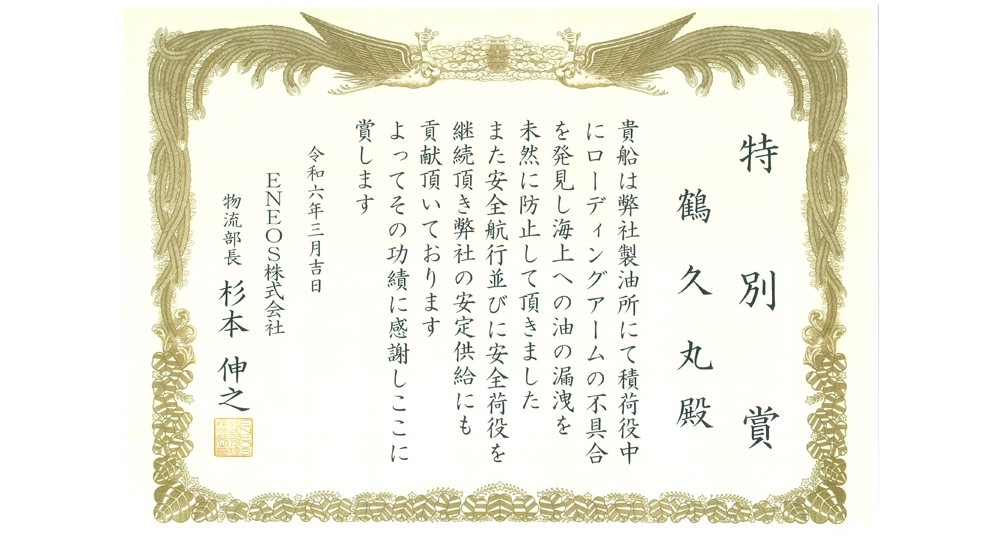 特別賞
鶴久丸殿
貴船は弊社製油所にて積荷役中
にローディングアームの不具合
を発見し海上への油の漏洩を
未然に防止して頂きました
また安全航行並びに安全荷役を
継続頂き弊社の安定供給にも
貢献頂いております
よってその功績に感謝しここに
賞します
令和六年三月吉日
ENEOS株式会社
物流部長 杉本 伸之